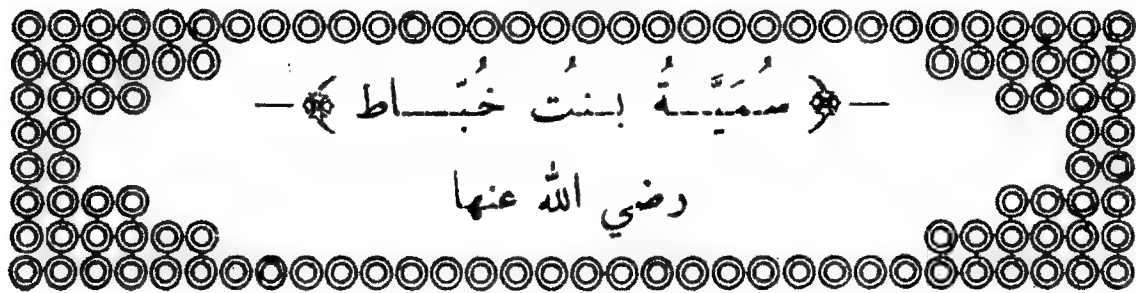 سُمَيَّةُ بنتُ خُبَّاط
رضي الله عنها